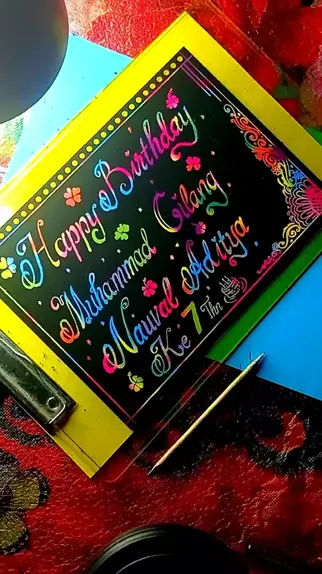 Happy Birthday
Muhammad Gilang
Nawal Aditya
Ke 7 Thn